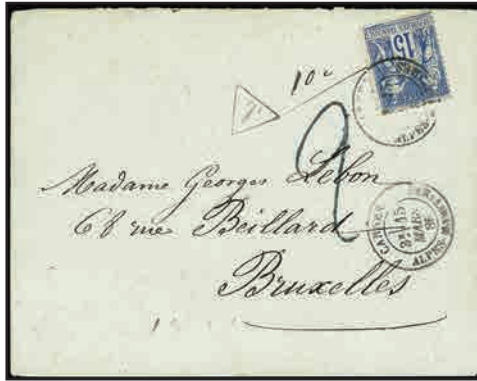 15
10c
T
2
Madame Georges Lebon
68 rue Beillard
Bruxelles
CANNES
15
MARS
ALPES-MARITIMES